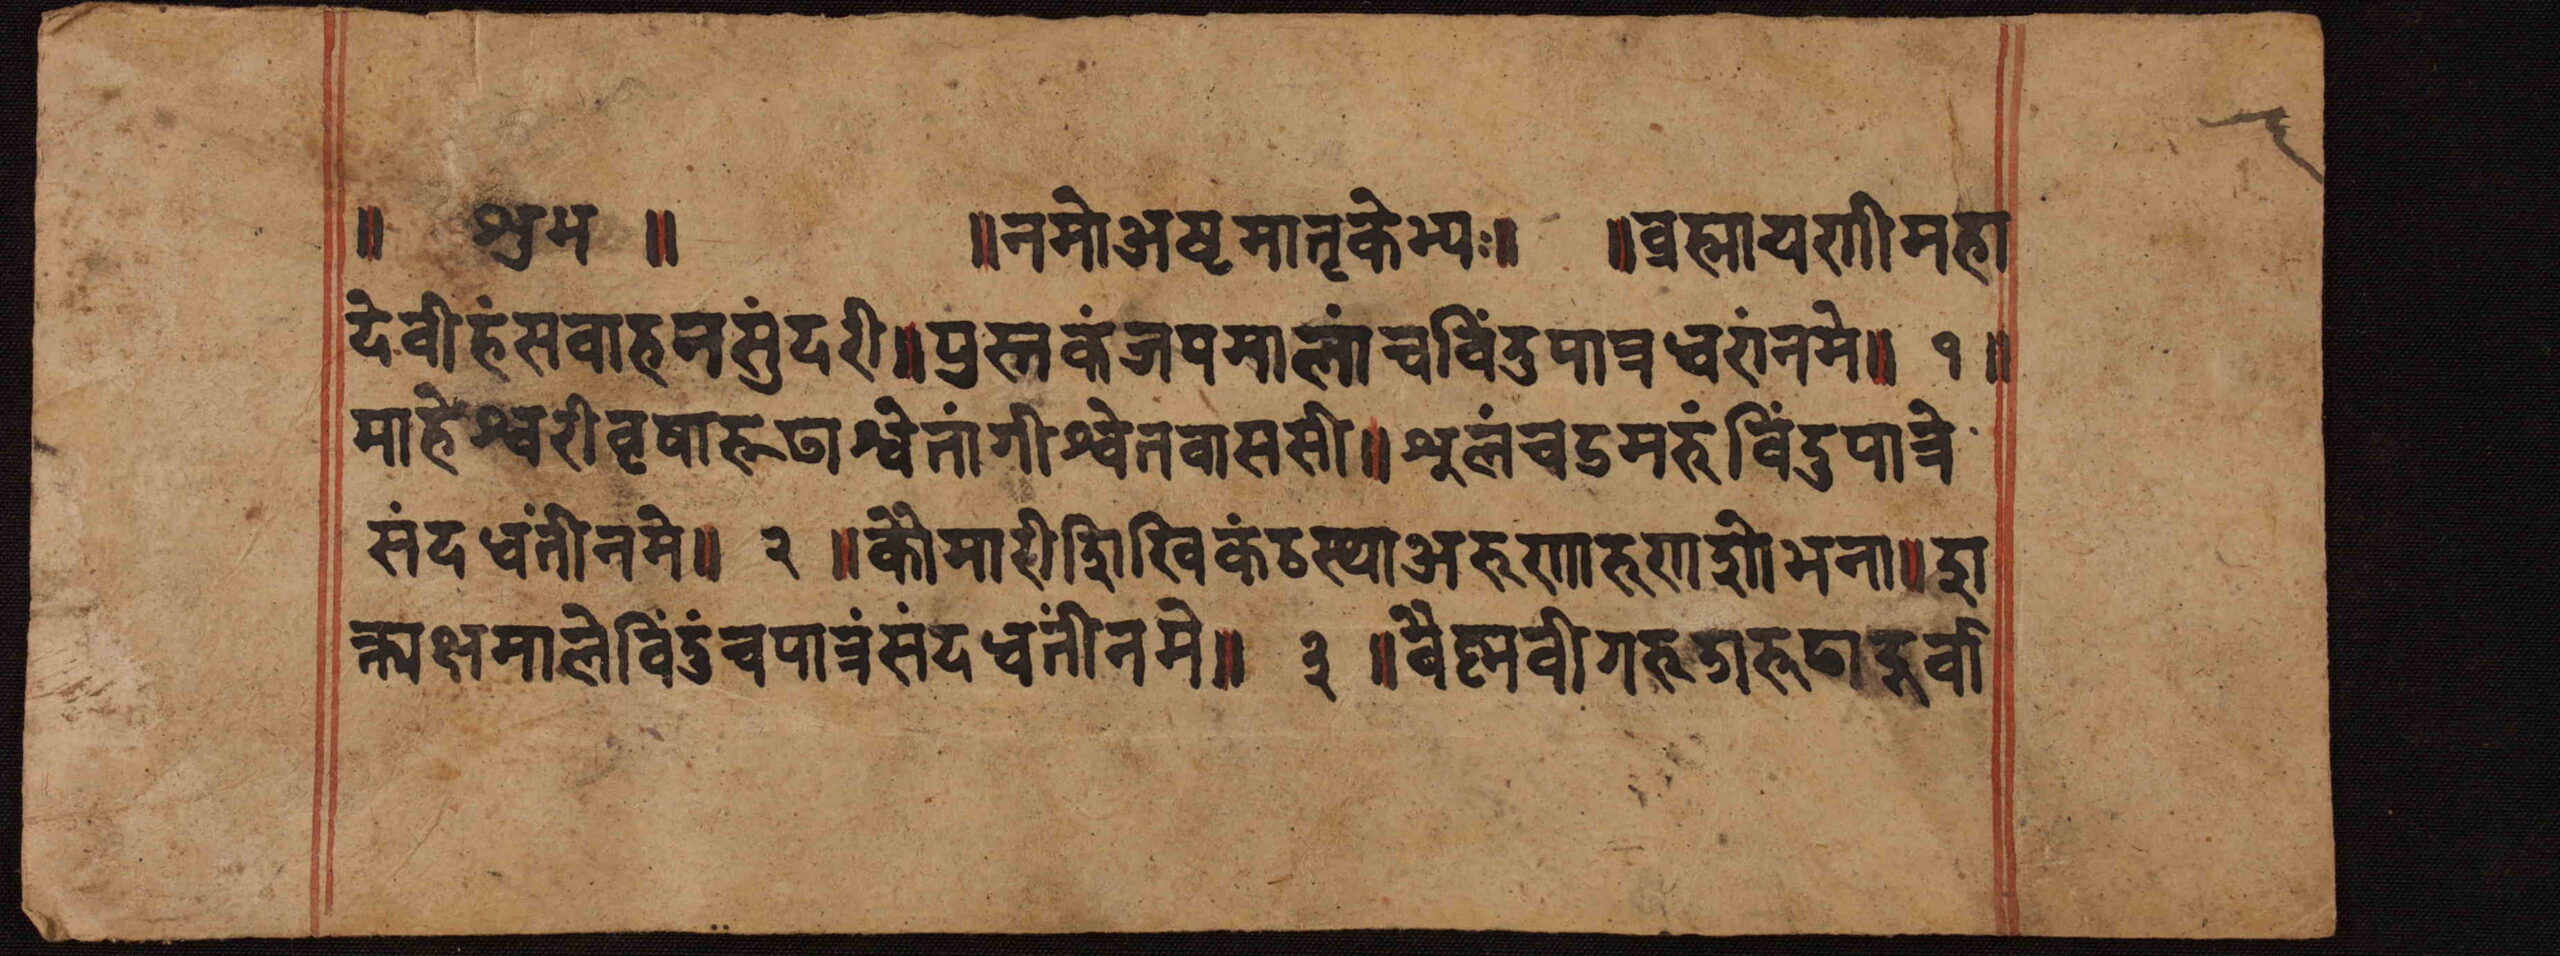 ॥ शुभ ॥ ॥नमोअष्टमातृकेभ्यः॥ ॥ब्रह्मायणीमहा
देवीहंसवाहनसुंदरी॥पुस्तकंजपमालांचविंदुपात्रध्वरांनमे॥ १ ॥
माहेश्वरीवृषारूढाश्वेतांगीश्वेतवाससी॥शुलंचडमरुंविंदुपात्रे
संदध्वंतीनमे॥ २ ॥कौमारीशिखिकंठस्थाअरुणारुणशोभना॥श
क्त्याक्षमालेविंदुंचपात्रंसंदध्वंतींनमे॥ ३ ॥वैष्णवीगरुडारूढादूर्वा